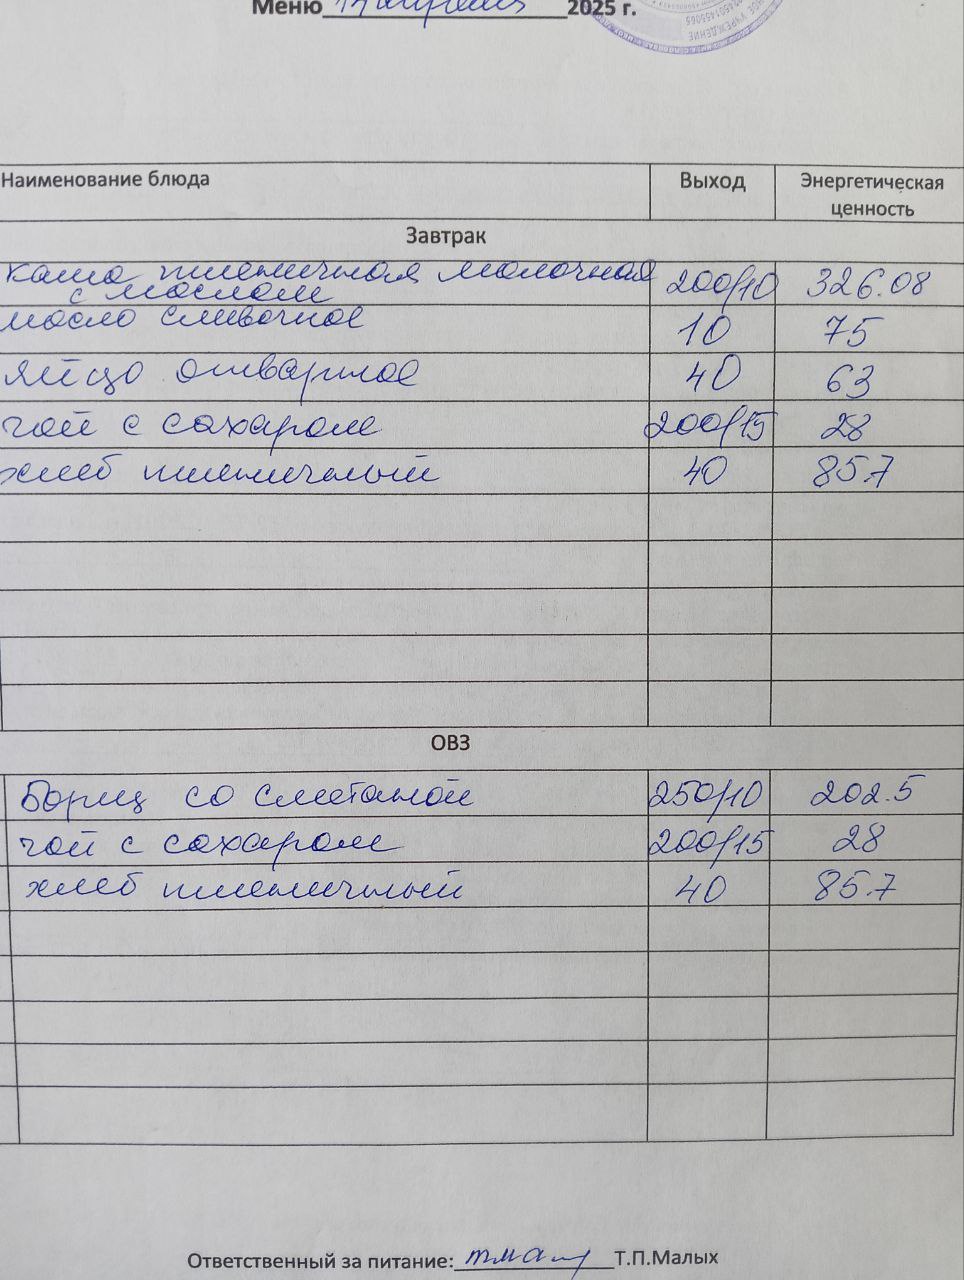 Меню 14 апреля 2025 г.
Наименование блюда Выход Энергетическая ценность
Завтрак
каша пшеничная молочная с маслом 200/10 326.08
масло сливочное 10 75
яйцо отварное 40 63
чай с сахаром 200/15 28
хлеб пшеничный 40 85.7
ОВЗ
Борщ со сметаной 250/10 202.5
чай с сахаром 200/15 28
хлеб пшеничный 40 85.7
Ответственный за питание: Т.П.Малых